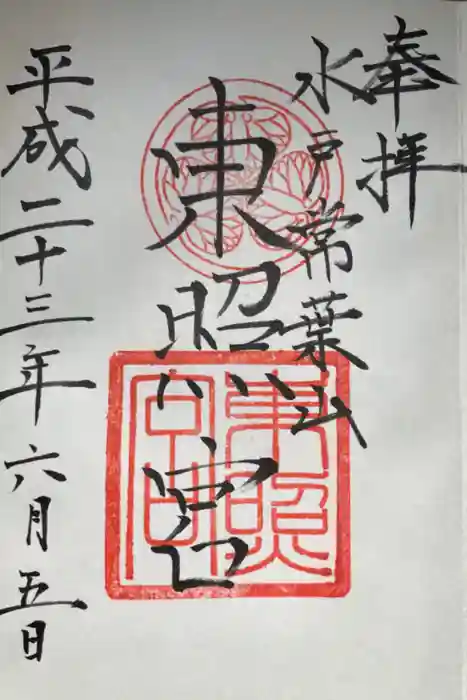 奉拝
水戸常葉山
東照宮
平成二十三年六月五日